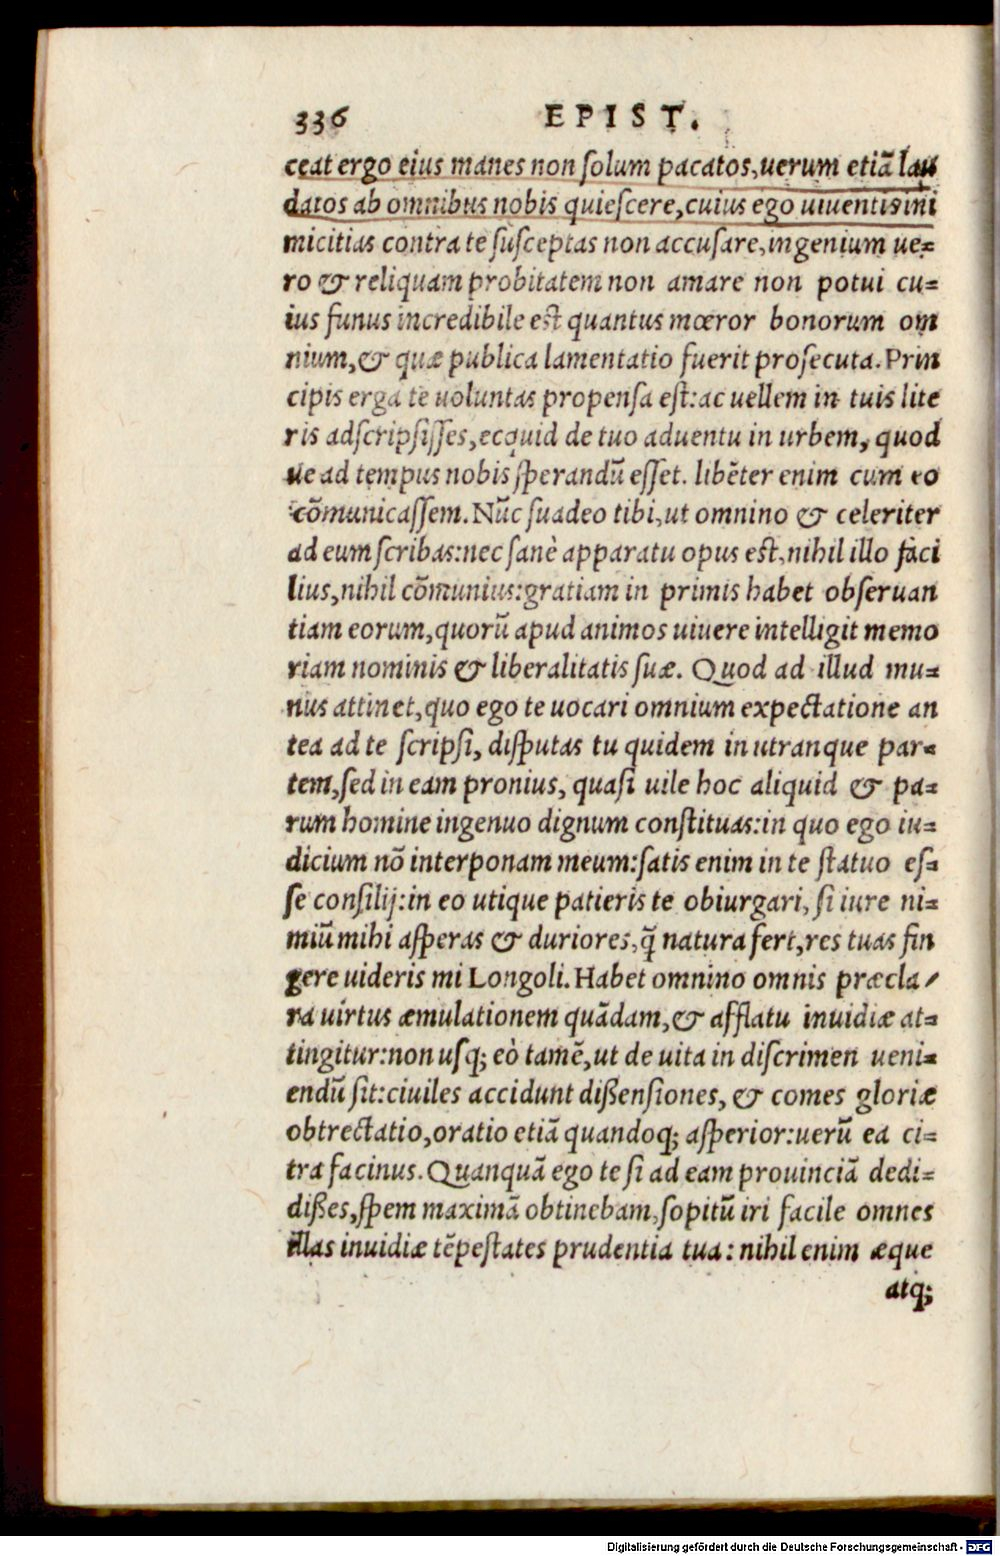 336 EPIST.
ceat ergo eius manes non solum pacatos, uerum etiā lau
datos ab omnibus nobis quiescere, cuius ego uiuentis ini
micitias contra te susceptas non accusare, ingenium ue=
ro & reliquam probitatem non amare non potui cu=
ius funus incredibile est quantus mœror bonorum om
nium, & quæ publica lamentatio fuerit prosecuta. Prin
cipis erga te uoluntas propensa est: ac uellem in tuis lite
ris adscripsisses, ecquid de tuo aduentu in urbem, quod
ue ad tempus nobis sperandū esset. libēter enim cum eo
cōmunicassem. Nūc suadeo tibi, ut omnino & celeriter
ad eum scribas: nec sanè apparatu opus est, nihil illo faci
lius, nihil cōmunius: gratiam in primis habet obseruan
tiam eorum, quorū apud animos uiuere intelligit memo
riam nominis & liberalitatis suæ. Quod ad illud mu=
nus attinet, quo ego te uocari omnium expectatione an
tea ad te scripsi, disputas tu quidem in utranque par=
tem, sed in eam pronius, quasi uile hoc aliquid & pa=
rum homine ingenuo dignum constituas: in quo ego iu=
dicium nō interponam meum: satis enim in te statuo es=
se consilij: in eo utique patieris te obiurgari, si iure ni=
miū mihi asperas & duriores, q̄ natura fert, res tuas fin
gere uideris mi Longoli. Habet omnino omnis præcla/
ra uirtus æmulationem quādam, & afflatu inuidiæ at=
tingitur: non usq; eò tamē, ut de uita in discrimen ueni=
endū sit: ciuiles accidunt dißensiones, & comes gloriæ
obtrectatio, oratio etiā quandoq; asperior: uerū ea ci=
tra facinus. Quanquā ego te si ad eam prouinciā dedi=
dißes, spem maximā obtinebam, sopitū iri facile omnes
illas inuidiæ tēpestates prudentia tua: nihil enim æque
atq;
Digitalisierung gefördert durch die Deutsche Forschungsgemeinschaft - DFG